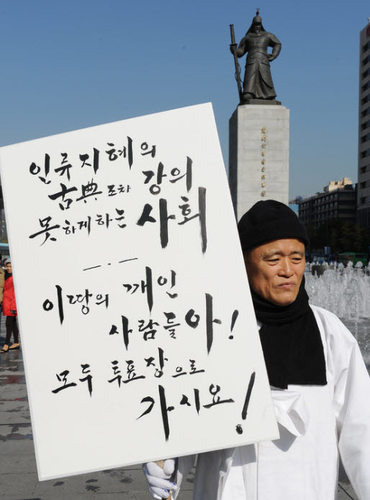 인류지혜의
古典조차 강의
못하게하는 사회
이땅의 깨인
사람들아!
모두 투표장으로
가시요!